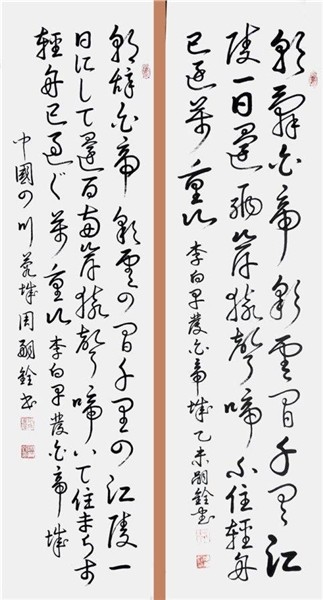 朝辭白帝彩雲間千里江
陵一日還兩岸猿聲啼不住輕舟
已過萬重山 李白早發白帝城乙未嗣銓書
朝辞白帝彩雲の間千里の江陵一
日にして還る両岸猿聲啼いて住まらず
輕舟已過ぐ萬重山 李白早發白帝城
中國四川 城周嗣銓書